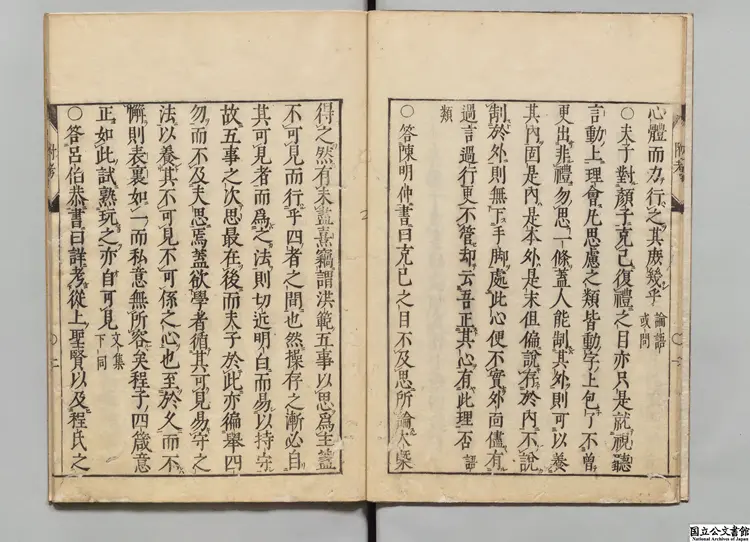 心體而力行之其庶幾乎 論語或問
○夫子對顏子克己復禮之目亦只是就視聽
言動上理會凡思慮之類皆動字上包了不曾
更出非禮勿思一條蓋人能制其外則可以養
其內固是內是本外是末但偏說存於內不說
制於外則無下手脚處此心便不實外面儘有
過言過行更不管却云吾正其心有此理否 語
類
○答陳明仲書曰克己之目不及思所論大槩
得之然有未盡熹竊謂洪範五事以思爲主蓋
不可見而行乎四者之間也然操存之漸必自
其可見者而爲之法則切近明白而易以持守
故五事之次思最在後而夫子於此亦徧舉四
勿而不及夫思焉蓋欲學者循其可見易守之
法以養其不可見不可係之心也至於久而不
懈則表裏如一而私意無所容矣程子四箴意
正如此試熟玩之亦自可見 文集下同
○答呂伯恭書曰詳考從上聖賢以及程氏之
附考
附考
○二
国立公文書館
National Archives of Japan